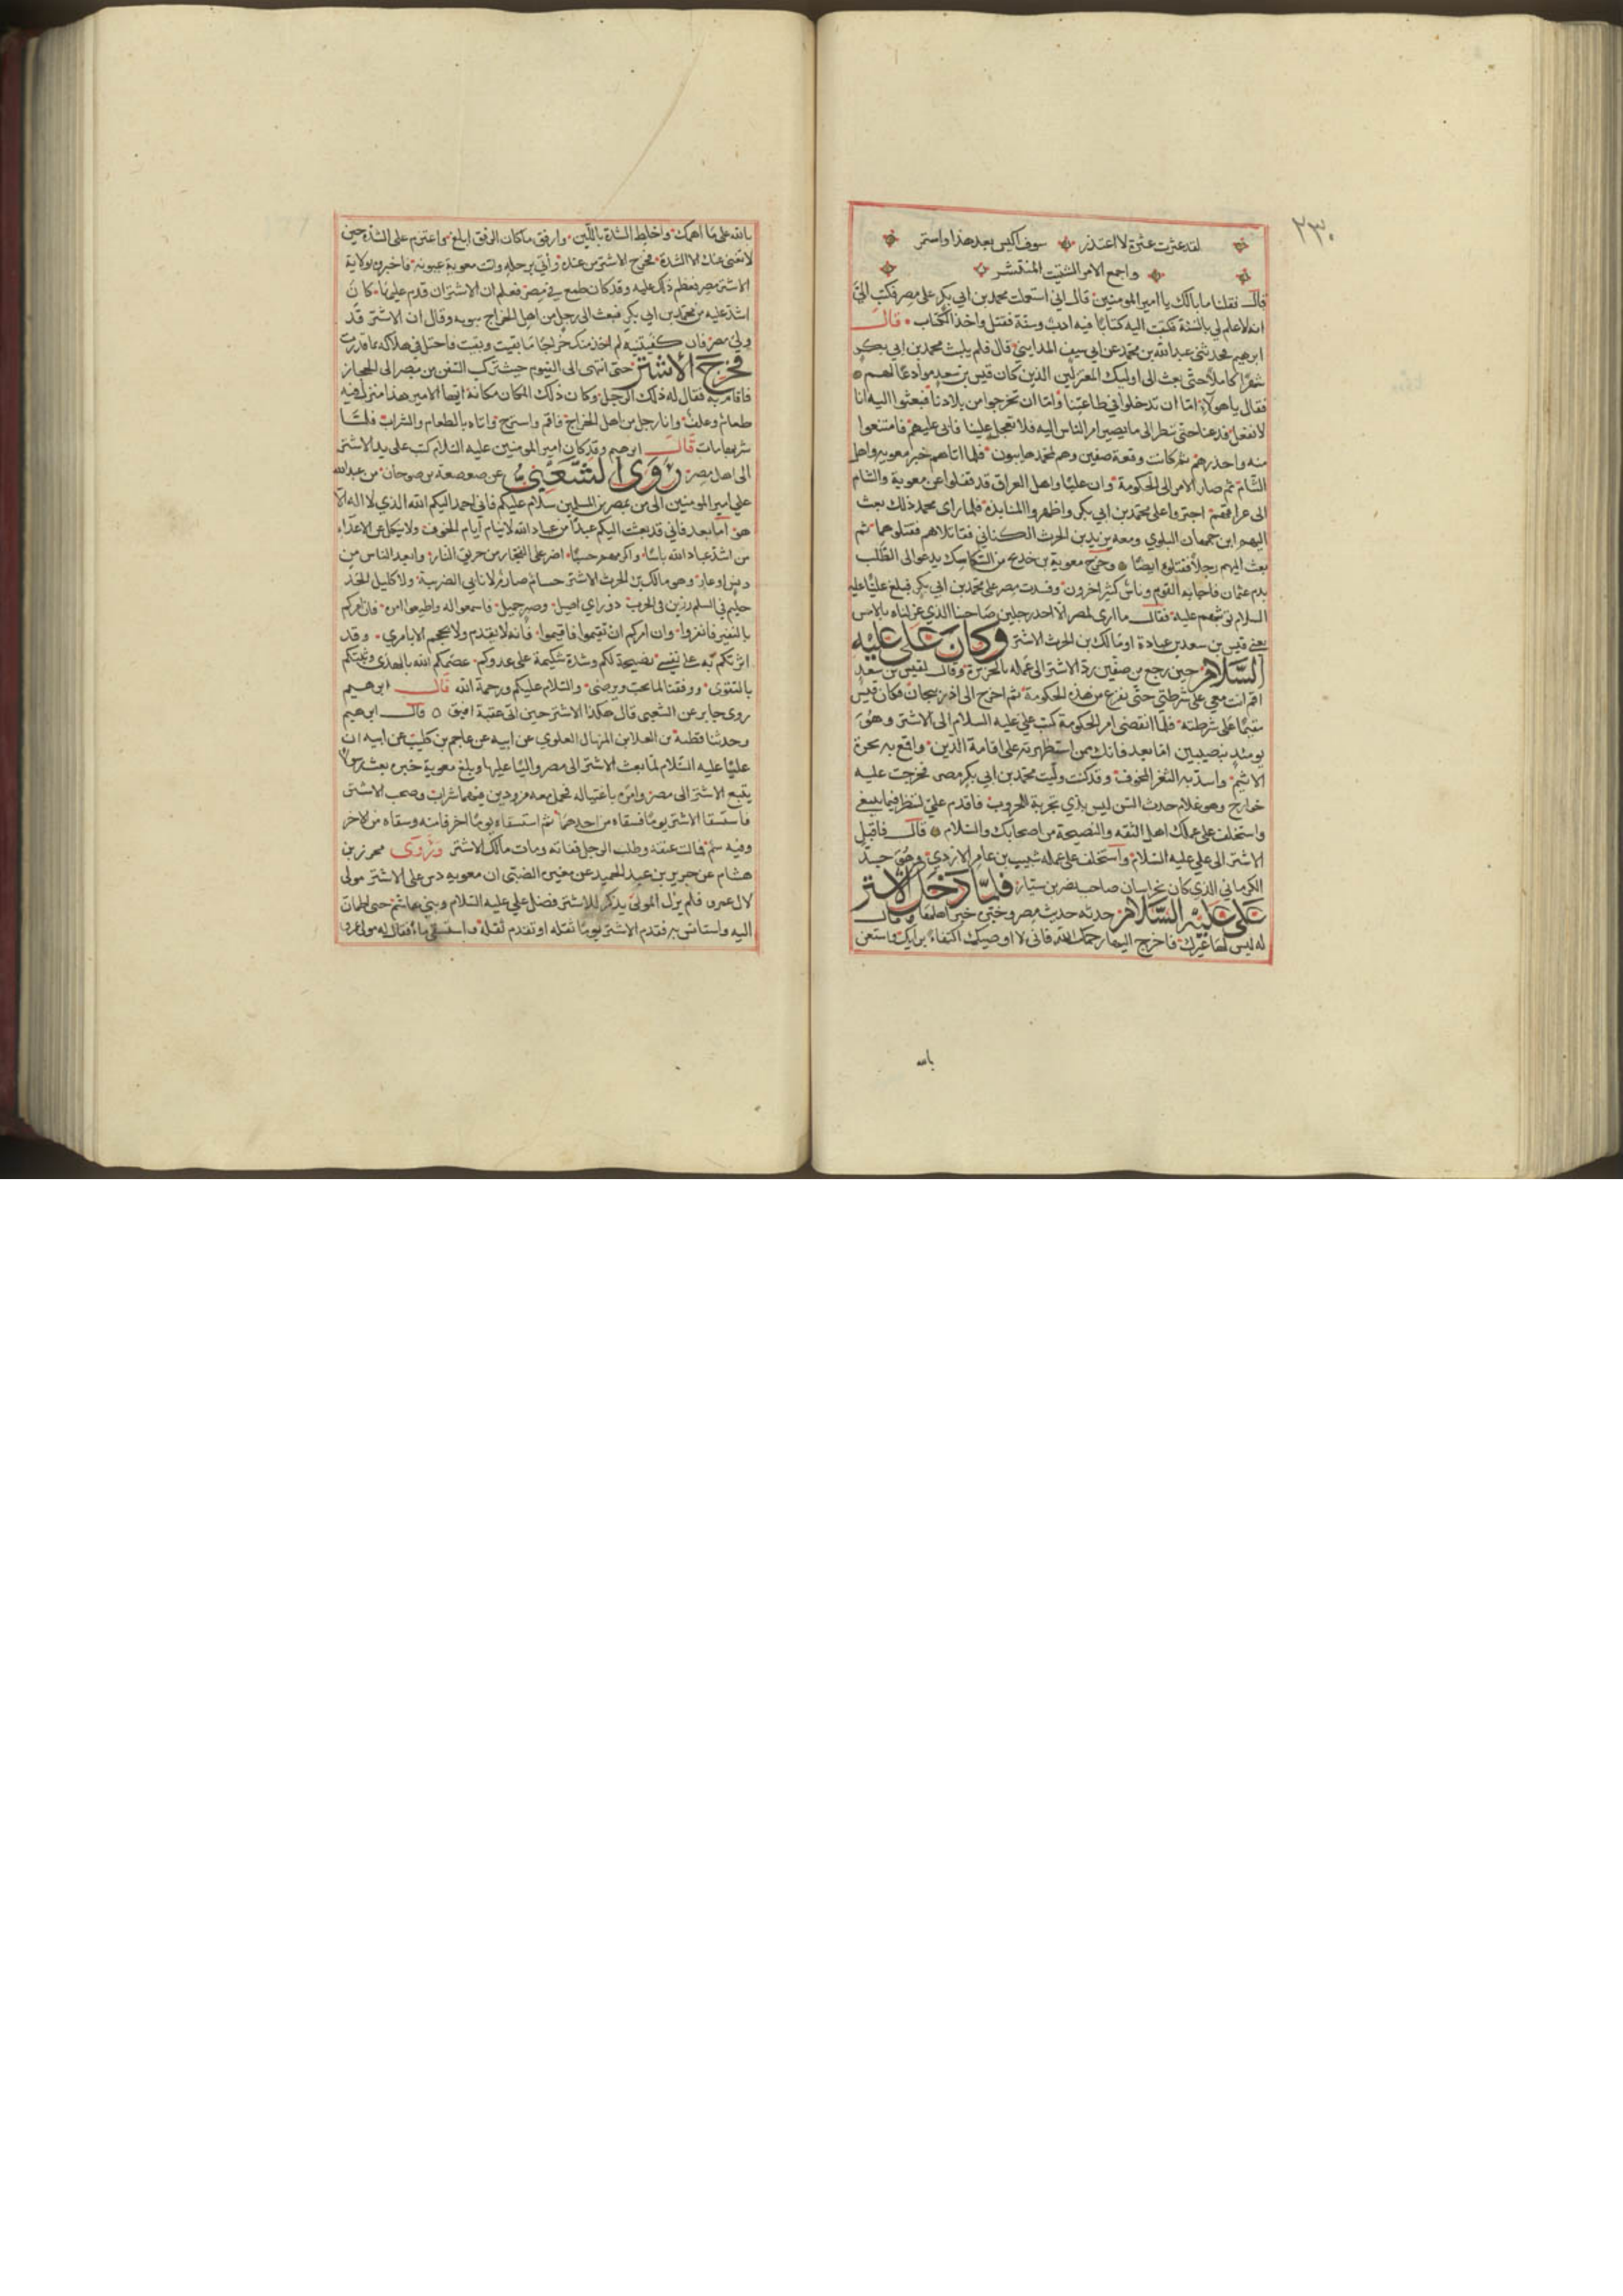 ٢٣٠
لقد عثرت عثرة لا اعتذر سوف اكيس بعد هذا واستمر
واجمع الامر الشتيت المنتشر
قال فقلنا ما بالك يا امير المومنين قال اني استعملت محمد بن ابي بكر على مصر فكتب الي
انه لا علم لي بالسنة فكتبت اليه كتابا فيه ادب وسنة فقتل واخذ الكتاب قال
ابرهيم فحدثني عبد الله بن محمد عن ابي سيف المدايني قال فلم يلبث محمد بن ابي بكر
شهرا كاملا حتى بعث الى اوليك المعتزلين الذين كان قيس بن سعد موادعا لهم
فقال ياهولاء اما ان تدخلوا في طاعتنا واما ان تخرجوا من بلادنا فبعثوا اليه انا
لا نفعل فدعنا حتى ننظر الى ما يصير امر الناس اليه فلا تعجل علينا فابى عليهم فامتنعوا
منه واخذ حذرهم ثم كانت وقعة صفين وهم لمحمد هايبون فلما اتاهم خبر معويه واهل
الشام ثم صار الامر الى الحكومة وان عليا واهل العراق قد قفلوا عن معوية والشام
الى عراقهم اجتروا على محمد بن ابي بكر واظهروا المنابذة فلما راى محمد ذلك بعث
اليهم ابن جمهان البلوي ومعه يزيد بن الحرث الكناني فقاتلاهم فقتلوهما ثم
بعث اليهم رجلا فقتلوه ايضا وخرج معوية بن خديج من السكاسك يدعو الى الطلب
بدم عثمان فاجابه القوم وناس كثير اخرون وفسدت مصر على محمد بن ابي بكر فبلغ عليا عليه
السلام توثبهم عليه فقال ما ارى لمصر الا احد رجلين صاحبنا الذي عزلناه بالامس
يعني قيس بن سعد بن عبادة او مالك بن الحرث الاشتر وكان علي عليه
السلام حين رجع من صفين رد الاشتر الى عمله بالجزيرة وقال لقيس بن سعد
اقم انت معي على شرطتي حتى نفرغ من هذه الحكومة ثم اخرج الى اذربيجان فكان قيس
مقيما على شرطته فلما انقضى امر الحكومة كتب علي عليه السلام الى الاشتر وهو
يومئذ بنصيبين اما بعد فانك ممن استظهر به على اقامة الدين واقمع به نخوة
الاثيم واسد به الثغر المخوف وقد كنت وليت محمد بن ابي بكر مصر فخرجت عليه
خوارج وهو غلام حدث السن ليس بذي تجربة للحروب فاقدم علي لننظر فيما ينبغي
واستخلف على عملك اهل الثقه والنصيحة من اصحابك والسلام قال فاقبل
الاشتر الى علي عليه السلام واستخلف على عمله شبيب بن عامر الازدي وهو جد
الكرماني الذي كان بخراسان صاحب نصر بن سيار فلما دخل الاشتر
على عليه السلام حدثه حديث مصر وخبره خبر اهلها وقال
له ليس لها غيرك فاخرج اليها رحمك الله فاني لا اوصيك اكتفاء برايك واستعن
بالله
بالله على ما اهمك واخلط الشدة باللين وارفق ما كان الرفق ابلغ واعتزم على الشدة حين
لا يغني عنك الا الشدة فخرج الاشتر من عنده واتى برحله واتت معوية عيونه فاخبروه بولاية
الاشتر مصر فعظم ذلك عليه وقد كان طمع في مصر فعلم ان الاشتر ان قدم عليها كان
اشد عليه من محمد بن ابي بكر فبعث الى رجل من اهل الخراج يثق به وقال ان الاشتر قد
ولي مصر فان كفيتنيه لم اخذ منك خراجا ما بقيت وبقيت فاحتل في هلاكه ما قدرت
فخرج الاشتر حتى انتهى الى القلزم حيث تركب السفن من مصر الى الحجاز
فاقام به فقال له ذلك الرجل وكان ذلك المكان مكانه ايها الامير هذا منزل فيه
طعام وعلف وانا رجل من اهل الخراج فاقم واسترح واتاه بالطعام والشراب فلما
شربها مات قال ابرهيم وقد كان امير المومنين عليه السلام كتب على يد الاشتر
الى اهل مصر روى الشعبي عن صعصعة بن صوحان من عبد الله
علي امير المومنين الى من بمصر من المسلمين سلام عليكم فاني احمد اليكم الله الذي لا اله الا
هو اما بعد فاني قد بعثت اليكم عبدا من عباد الله لا ينام ايام الخوف ولا ينكل عن الاعداء
من اشد عباد الله باسا واكرمهم حسبا اضر على الفجار من حريق النار وابعد الناس من
دنس او عار وهو مالك بن الحرث الاشتر حسام صارم لا نابي الضريبة ولا كليل الحد
حليم في السلم رزين في الحرب ذو راي اصيل وصبر جميل فاسمعوا له واطيعوا امره فان امركم
بالنفير فانفروا وان امركم ان تقيموا فاقيموا فانه لا يقدم ولا يحجم الا بامري وقد
اثرتكم به على نفسي نصيحة لكم وشدة شكيمة على عدوكم عصمكم الله بالهدى وثبتكم
بالتقوى ووفقنا لما يحب ويرضى والسلام عليكم ورحمة الله قال ابرهيم
روى جابر عن الشعبي قال هكذا الاشتر حين اتى عقبة افيق قال ابرهيم
وحدثنا قطبة بن العلا بن المنهال العلوي عن ابيه عن عاصم بن كليب عن ابيه ان
عليا عليه السلام لما بعث الاشتر الى مصر واليا عليها وبلغ معوية خبره بعث رسولا
يتبع الاشتر الى مصر وامره باغتياله فحمل معه مزودين فيهما شراب وصحب الاشتر
فاستسقا الاشتر يوما فسقاه من احدهما ثم استسقاه يوما اخر فاتبه وسقاه من الاخر
وفيه سم فمالت عنقه وطلب الرجل ففاته ومات مالك الاشتر وروى محرز بن
هشام عن جرير بن عبد الحميد عن مغيرة الضبي ان معويه دس على الاشتر مولى
لال عمر فلم يزل المولى يذكر للاشتر فضل علي عليه السلام وبني هاشم حتى اطمان
اليه واستانس به فقدم الاشتر يوما ثقله او تقدم ثقله واستسقى ماء فقال له مولى عمر